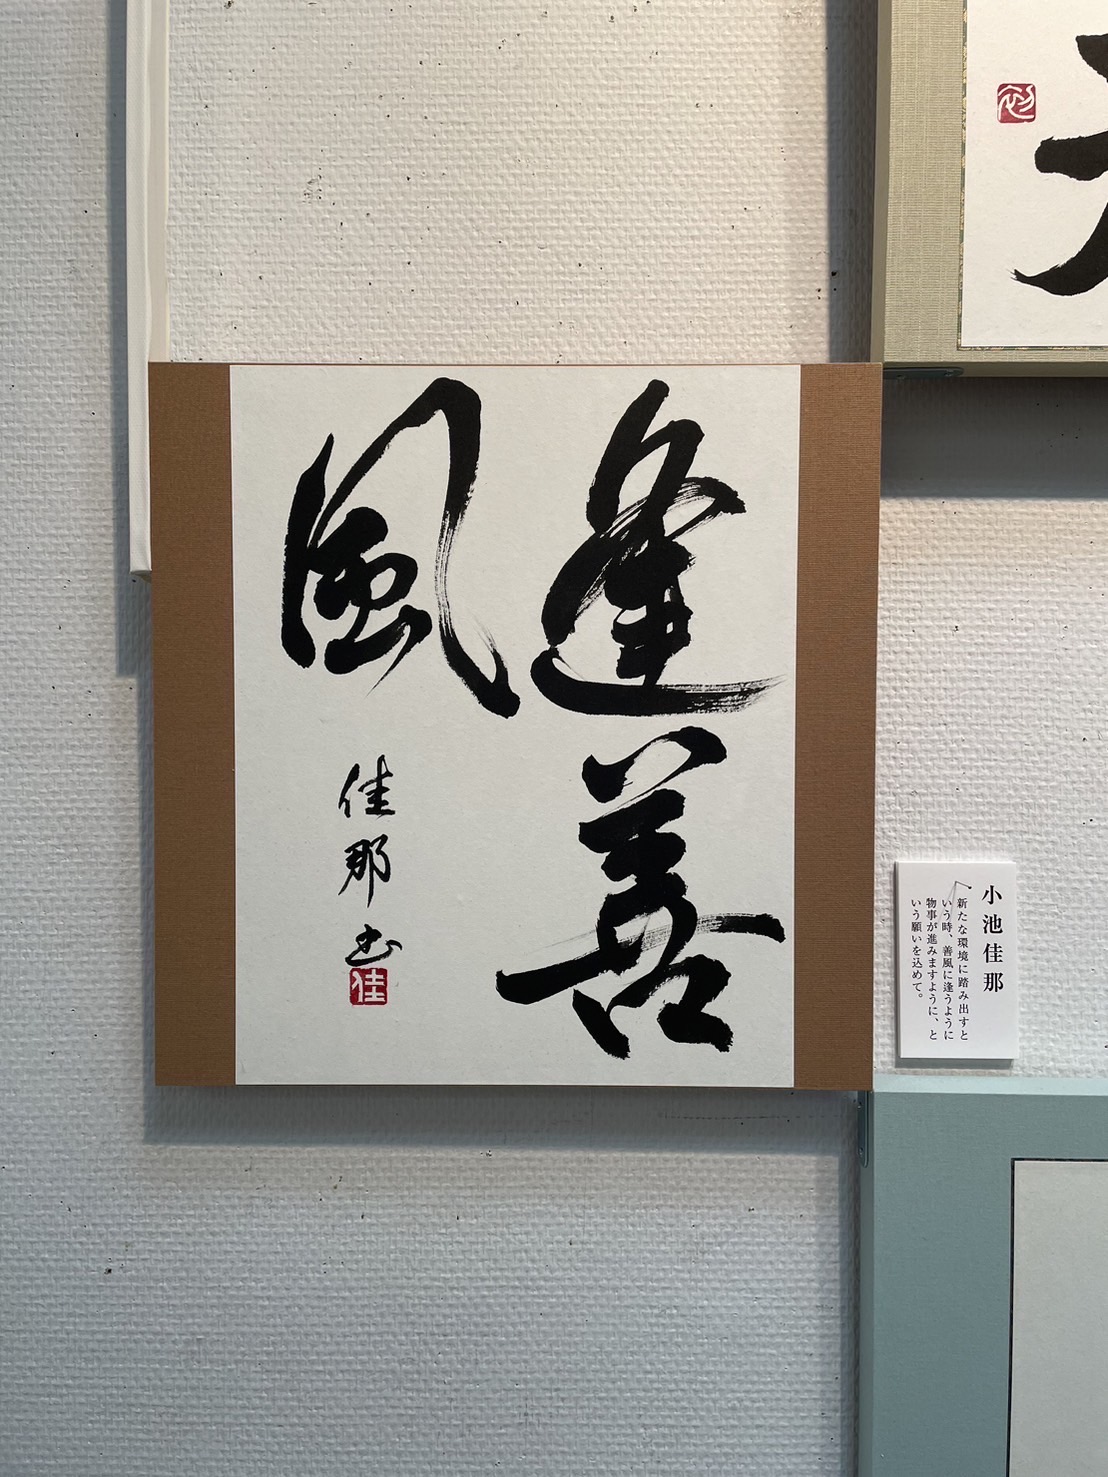 逢善
風
佳那书
佳
小池佳那
新たな環境に踏み出すと
いう時、善風に逢うように
物事が進みますように、と
いう願いを込めて。